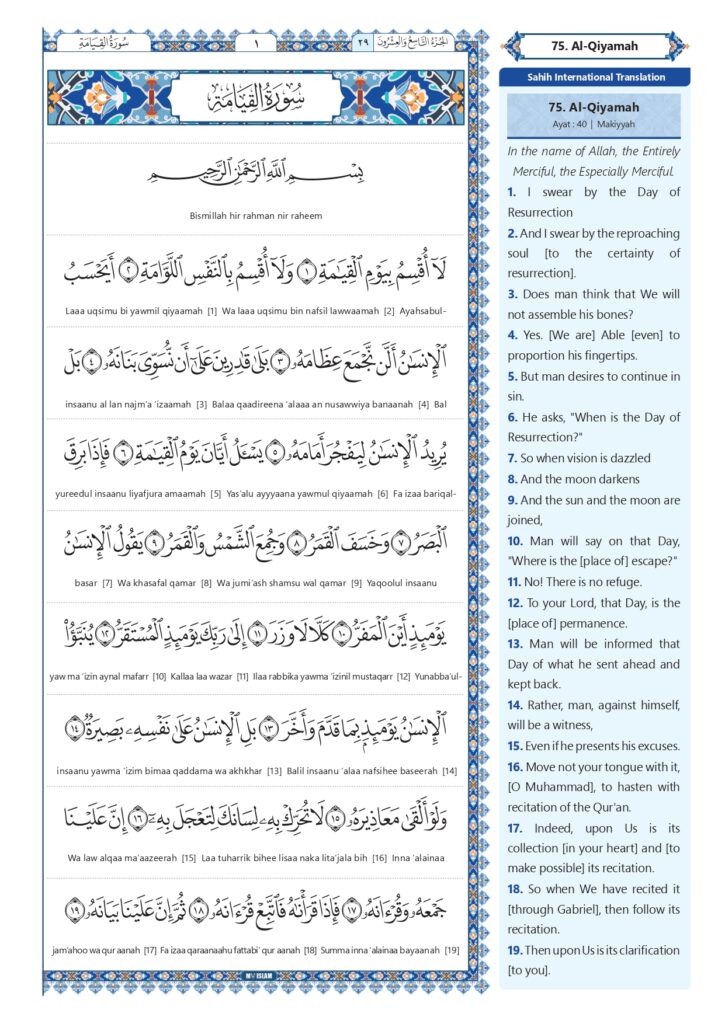 سُورَةُ الْقِيَامَةِ
١
٢٩ الجُزْءُ التَّاسِعُ وَالعِشْرُونَ
سُورَةُ الْقِيَامَةِ
بِسْمِ ٱللَّهِ ٱلرَّحْمَٰنِ ٱلرَّحِيمِ
Bismillah hir rahman nir raheem
لَآ أُقْسِمُ بِيَوْمِ ٱلْقِيَٰمَةِ ١ وَلَآ أُقْسِمُ بِٱلنَّفْسِ ٱللَّوَّامَةِ ٢ أَيَحْسَبُ
Laaa uqsimu bi yawmil qiyaamah [1] Wa laaa uqsimu bin nafsil lawwaamah [2] Ayahsabul-
ٱلْإِنسَٰنُ أَلَّن نَّجْمَعَ عِظَامَهُۥ ٣ بَلَىٰ قَٰدِرِينَ عَلَىٰٓ أَن نُّسَوِّىَ بَنَانَهُۥ ٤ بَلْ
insaanu al lan najm’a ‘izaamah [3] Balaa qaadireena ‘alaaa an nusawwiya banaanah [4] Bal
يُرِيدُ ٱلْإِنسَٰنُ لِيَفْجُرَ أَمَامَهُۥ ٥ يَسْـَٔلُ أَيَّانَ يَوْمُ ٱلْقِيَٰمَةِ ٦ فَإِذَا بَرِقَ
yureedul insaanu liyafjura amaamah [5] Yas’alu ayyyaana yawmul qiyaamah [6] Fa izaa bariqal-
ٱلْبَصَرُ ٧ وَخَسَفَ ٱلْقَمَرُ ٨ وَجُمِعَ ٱلشَّمْسُ وَٱلْقَمَرُ ٩ يَقُولُ ٱلْإِنسَٰنُ
basar [7] Wa khasafal qamar [8] Wa jumi’ash shamsu wal qamar [9] Yaqoolul insaanu
يَوْمَئِذٍ أَيْنَ ٱلْمَفَرُّ ١٠ كَلَّا لَا وَزَرَ ١١ إِلَىٰ رَبِّكَ يَوْمَئِذٍ ٱلْمُسْتَقَرُّ ١٢ يُنَبَّؤُا۟
yaw ma ‘izin aynal mafarr [10] Kallaa laa wazar [11] Ilaa rabbika yawma ‘izinil mustaqarr [12] Yunabba’ul-
ٱلْإِنسَٰنُ يَوْمَئِذٍۭ بِمَا قَدَّمَ وَأَخَّرَ ١٣ بَلِ ٱلْإِنسَٰنُ عَلَىٰ نَفْسِهِۦ بَصِيرَةٌ ١٤
insaanu yawma ‘izim bimaa qaddama wa akhkhar [13] Balil insaanu ‘alaa nafsihee baseerah [14]
وَلَوْ أَلْقَىٰ مَعَاذِيرَهُۥ ١٥ لَا تُحَرِّكْ بِهِۦ لِسَانَكَ لِتَعْجَلَ بِهِۦٓ ١٦ إِنَّ عَلَيْنَا
Wa law alqaa ma’aazeerah [15] Laa tuharrik bihee lisaa naka lita’jala bih [16] Inna ‘alainaa
جَمْعَهُۥ وَقُرْءَانَهُۥ ١٧ فَإِذَا قَرَأْنَٰهُ فَٱتَّبِعْ قُرْءَانَهُۥ ١٨ ثُمَّ إِنَّ عَلَيْنَا بَيَانَهُۥ ١٩
jam’ahoo wa qur aanah [17] Fa izaa qaraanaahu fattabi‘ qur aanah [18] Summa inna ‘alainaa bayaanah [19]
MY ISLAM
75. Al-Qiyamah
Sahih International Translation
75. Al-Qiyamah
Ayat : 40 | Makiyyah
In the name of Allah, the Entirely
Merciful, the Especially Merciful.
1. I swear by the Day of
Resurrection
2. And I swear by the reproaching
soul [to the certainty of
resurrection].
3. Does man think that We will
not assemble his bones?
4. Yes. [We are] Able [even] to
proportion his fingertips.
5. But man desires to continue in
sin.
6. He asks, "When is the Day of
Resurrection?"
7. So when vision is dazzled
8. And the moon darkens
9. And the sun and the moon are
joined,
10. Man will say on that Day,
"Where is the [place of] escape?"
11. No! There is no refuge.
12. To your Lord, that Day, is the
[place of] permanence.
13. Man will be informed that
Day of what he sent ahead and
kept back.
14. Rather, man, against himself,
will be a witness,
15. Even if he presents his excuses.
16. Move not your tongue with it,
[O Muhammad], to hasten with
recitation of the Qur'an.
17. Indeed, upon Us is its
collection [in your heart] and [to
make possible] its recitation.
18. So when We have recited it
[through Gabriel], then follow its
recitation.
19. Then upon Us is its clarification
[to you].